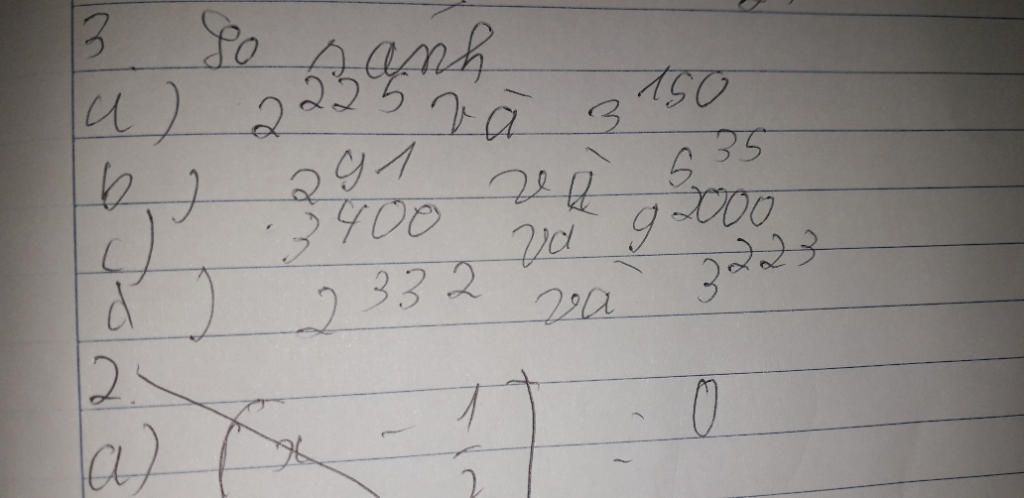 3. So sánh
a) 2^225 và 3^150
b) 2^91 và 5^35
c) 3^400 và 9^2000
d) 2^332 và 3^223
2.
a) (x - 1/2) = 0